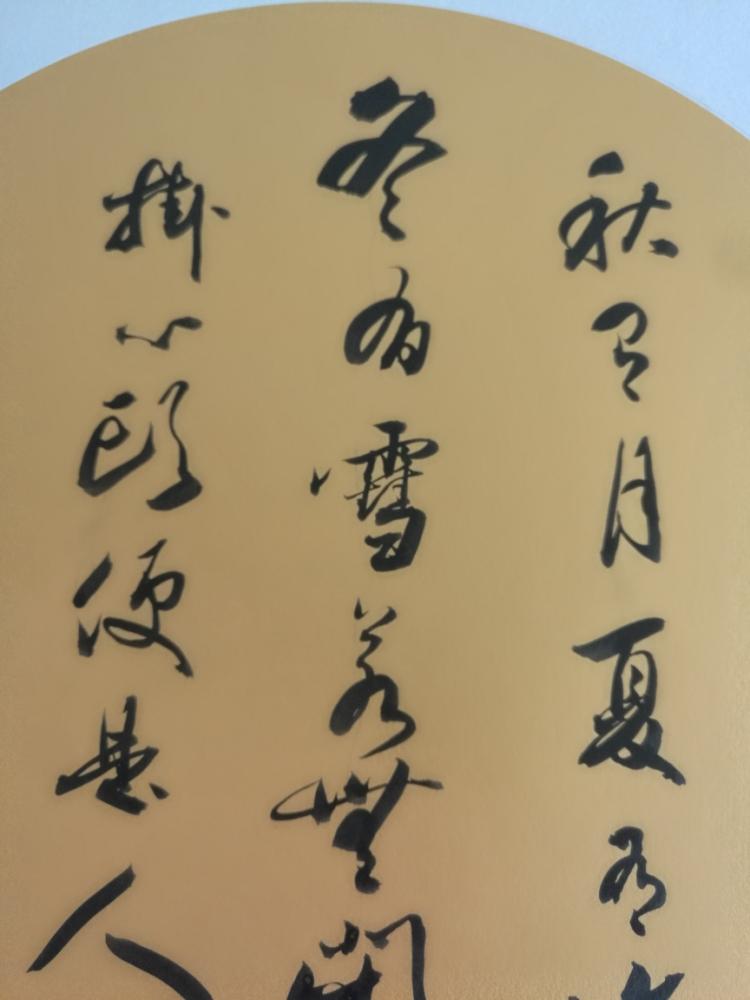 秋有月夏有
冬有雪若無
掛心頭便是人